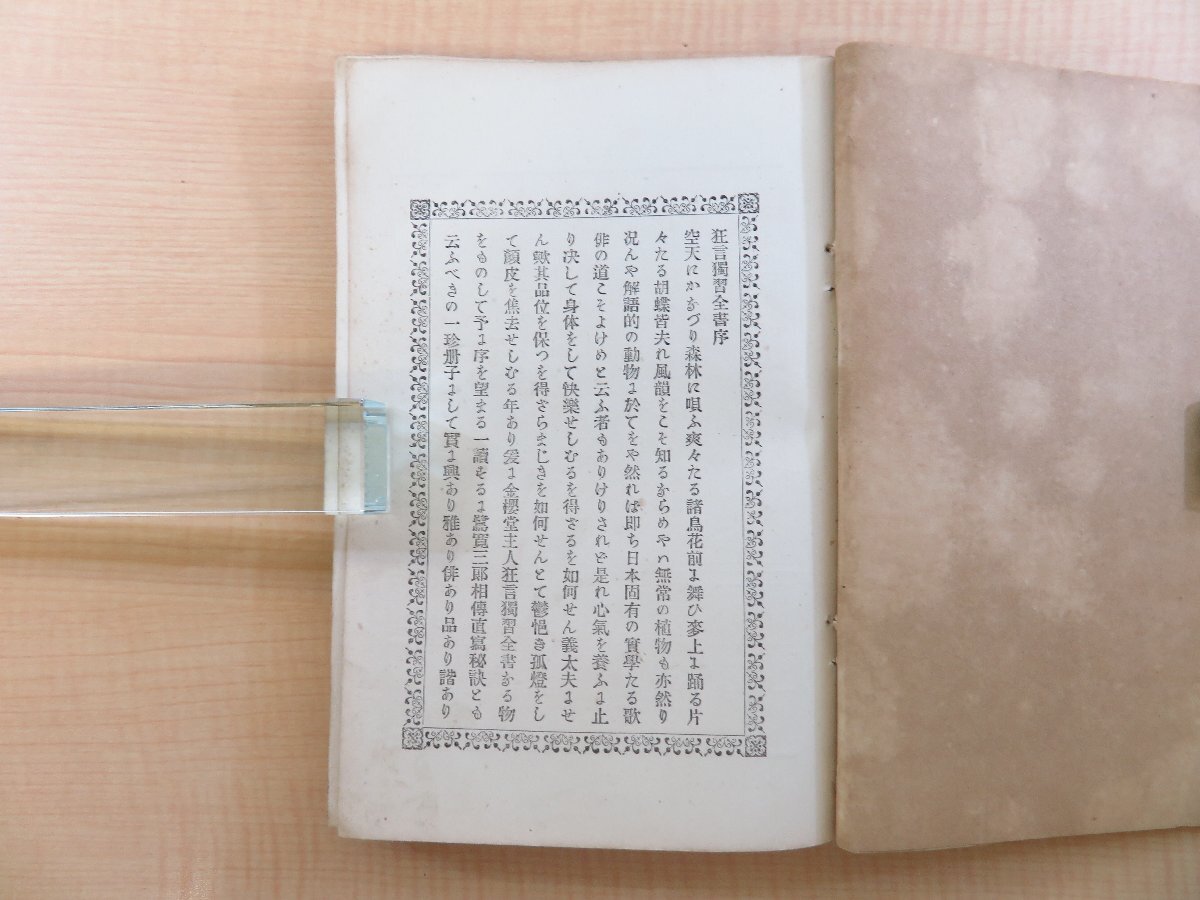 狂言獨習全書序
空天にかなづり森林に唄ふ爽々たる諸鳥花前に舞ひ麥上に踊る片
々たる胡蝶皆夫れ風韻をこそ知るならめやハ無常の植物も亦然り
况んや解語的の動物に於てをや然れば即ち日本固有の實學たる歌
俳の道こそよけめと云ふ者もありけりされど是れ心氣を養ふに止
り决して身体をして快樂せしむるを得さるを如何せん義太夫ませ
ん歟其品位を保つを得さらまじきを如何せんとて鬱悒き孤燈をし
て顔皮を焦去せしむる年あり爰に金櫻堂主人狂言獨習全書なる物
をものして予に序を望まる一讀するに鷺寬三郎相傳直寫秘訣とも
云ふべきの一珍册子にして實に興あり雅あり俳あり品あり諧あり